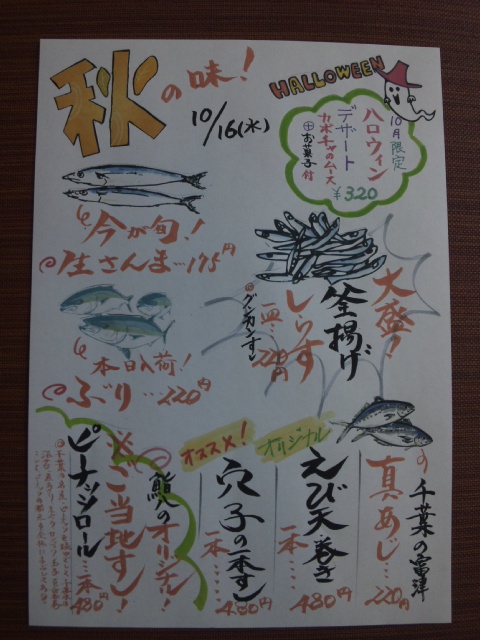 秋の味!
10/16(水)
HALLOWEEN
10月限定
ハロウィン
デザート
カボチャのムース
⊕お菓子付
¥320
今が旬!
生さんま…175円
本日入荷!
ぶり…220円
大盛!
釜揚げ
しらす
一皿…220円
千葉の富津
真あじ…220円
オリジナル
えび天巻き
一本……480円
オススメ!
穴子の一本すし
一本……480円
鮨人のオリジナル!
ご当地すし!
ピーナッツロール…一本480円